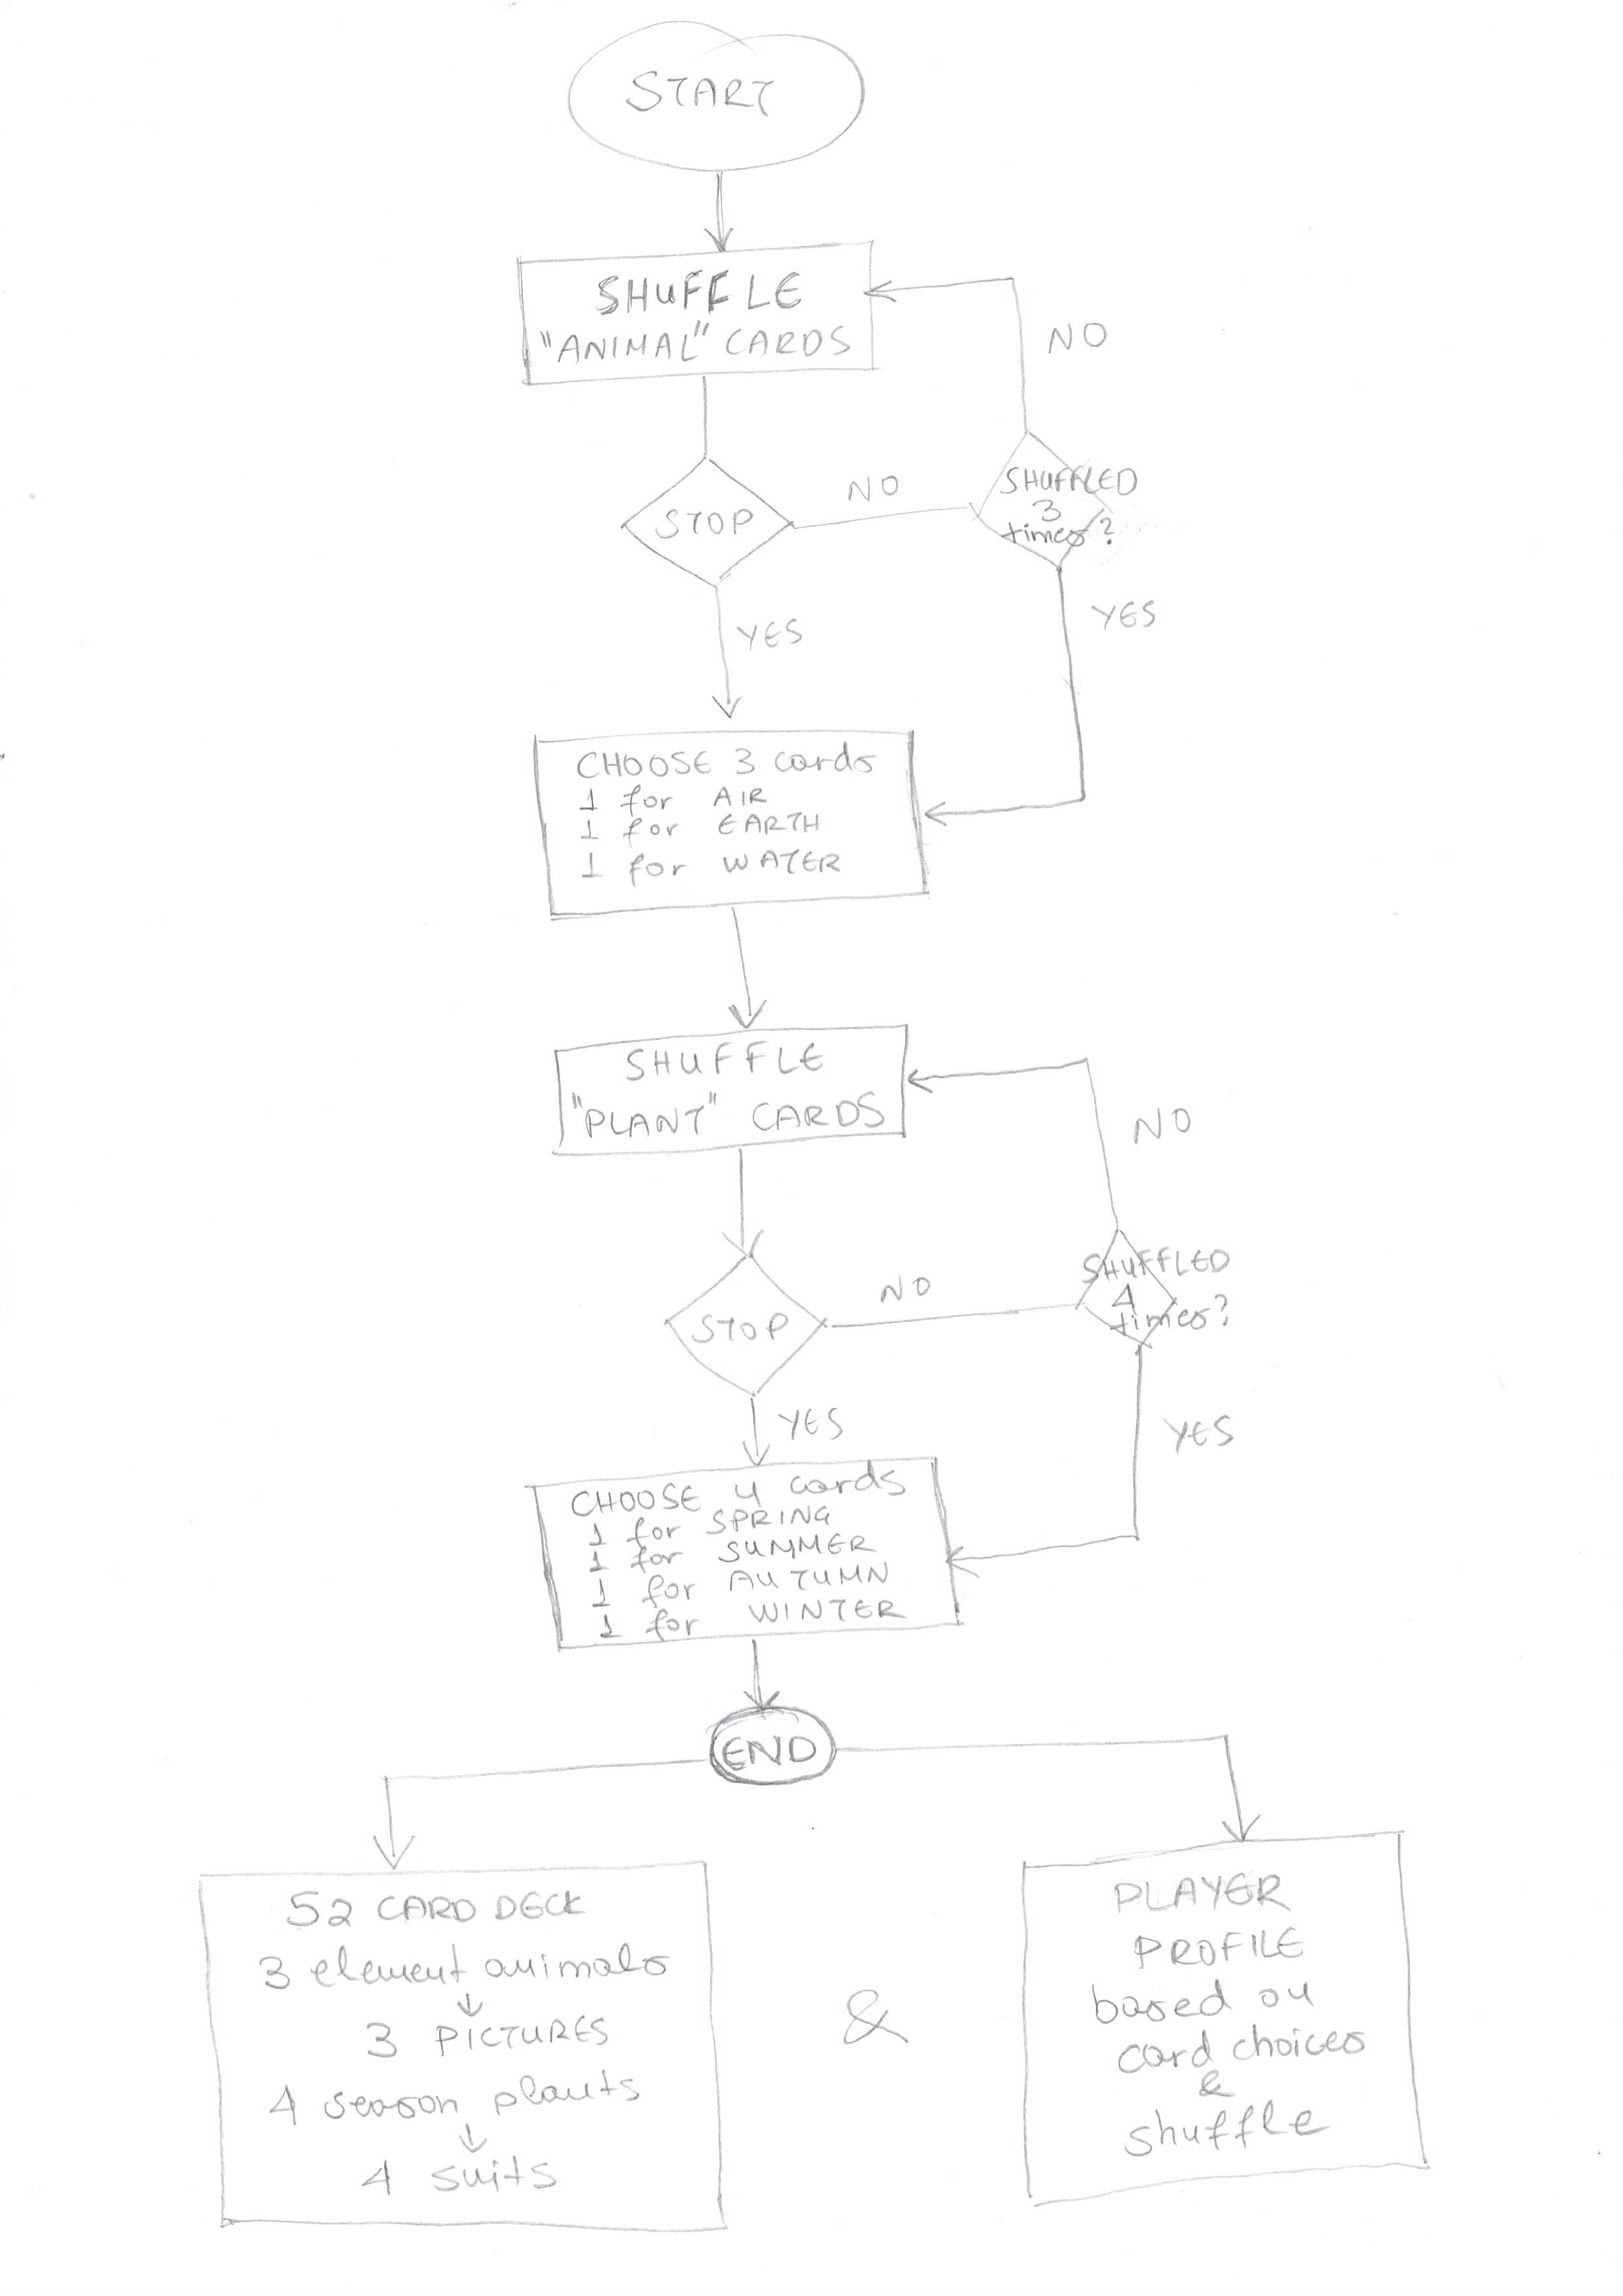 START
SHUFFLE
"ANIMAL" CARDS
NO
STOP
NO
SHUFFLED
3
times?
YES
YES
CHOOSE 3 cards
1 for AIR
1 for EARTH
1 for WATER
SHUFFLE
"PLANT" CARDS
NO
STOP
NO
SHUFFLED
4
times?
YES
YES
CHOOSE 4 cards
1 for SPRING
1 for SUMMER
1 for AUTUMN
1 for WINTER
END
52 CARD DECK
3 element animals
3 PICTURES
4 season plants
4 suits
&
PLAYER
PROFILE
based on
card choices
&
shuffle